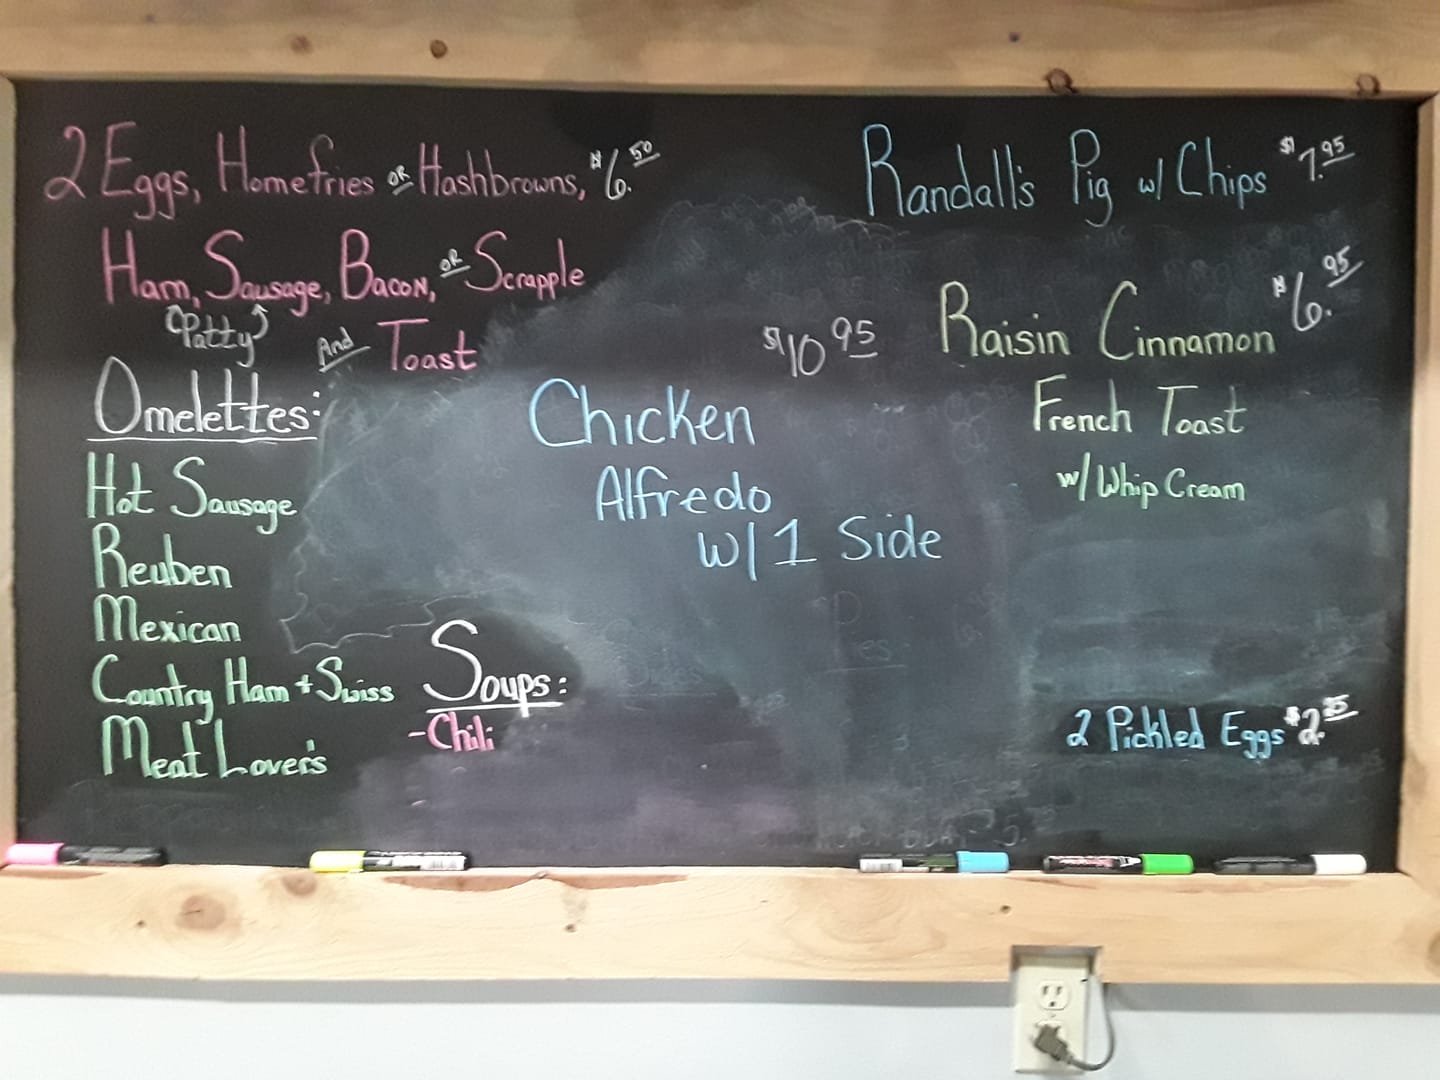 2 Eggs, Homefries or Hashbrowns, $6.50
Ham, Sausage, Bacon, or Scrapple
Patty
And Toast
Omelettes:
Hot Sausage
Reuben
Mexican
Country Ham + Swiss
Meat Lover's
Soups:
-Chili
$10.95
Chicken
Alfredo
w/ 1 Side
Randall's Pig w/ Chips $7.95
Raisin Cinnamon $6.95
French Toast
w/ Whip Cream
2 Pickled Eggs